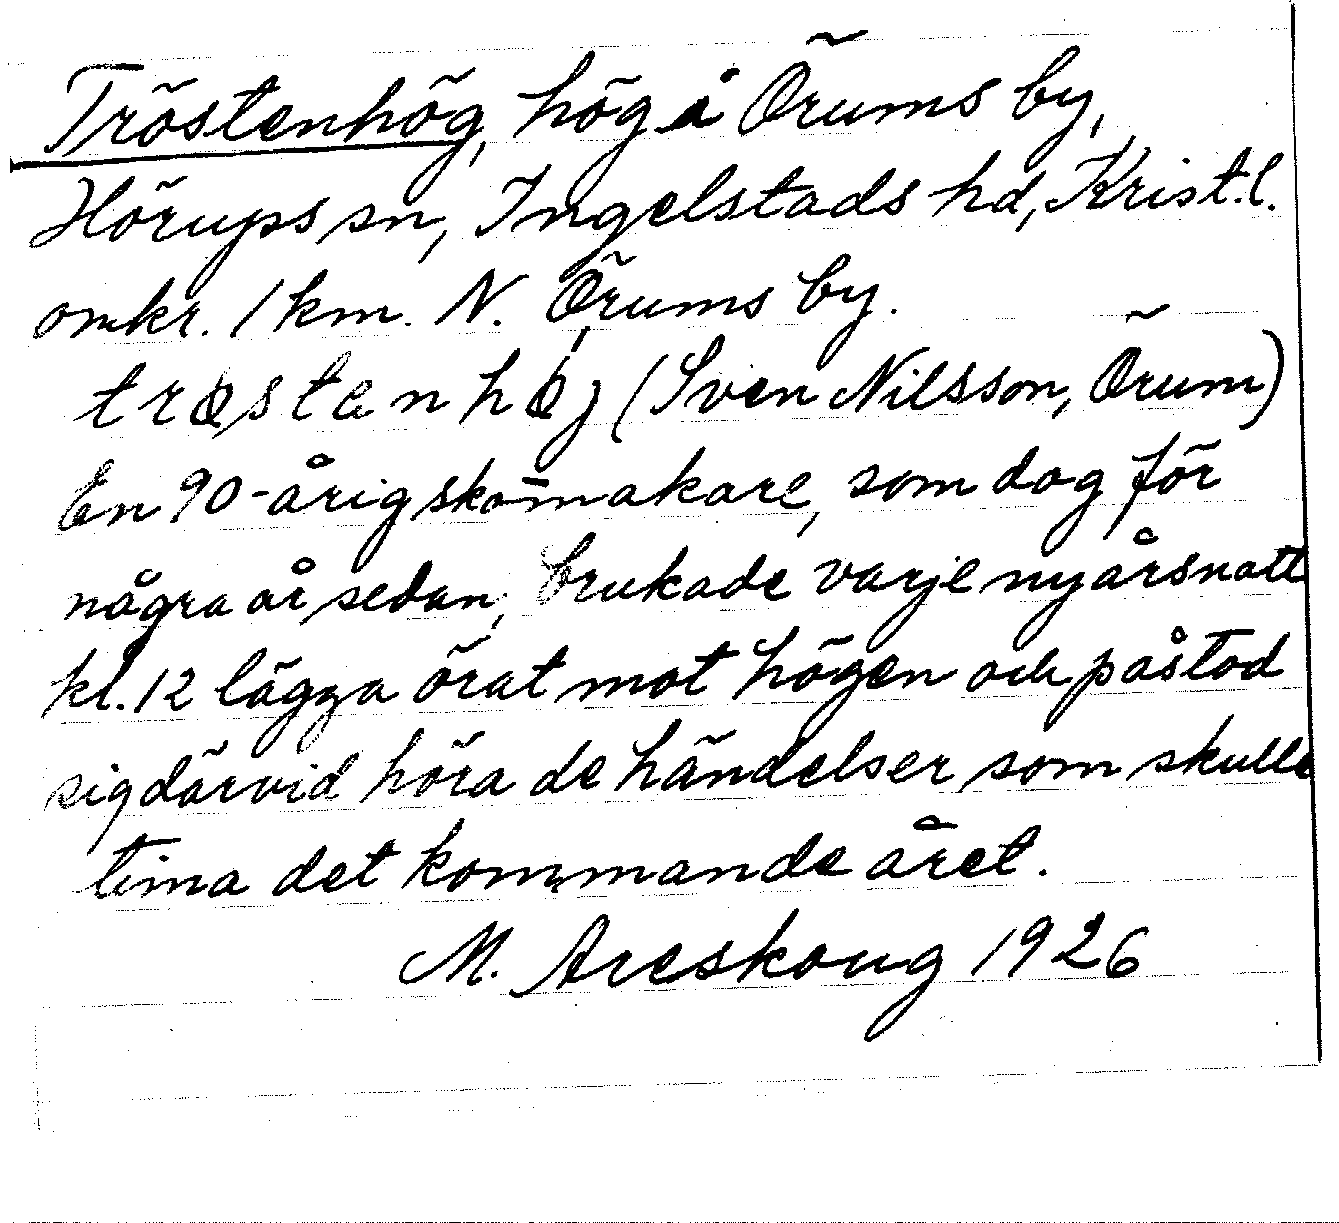 Tröstenhög, hög å Örums by,
Hörups sn, Ingelstads hd, Krist.l.
omkr. 1 km. N. Örums by.
trøstenhøj (Sven Nilsson, Örum)
En 90-årig skomakare, som dog för
några år sedan, brukade varje nyårsnatt
kl. 12 lägga örat mot högen och påstod
sig därvid höra de händelser som skulle
tima det kommande året.
M. Areskoug 1926